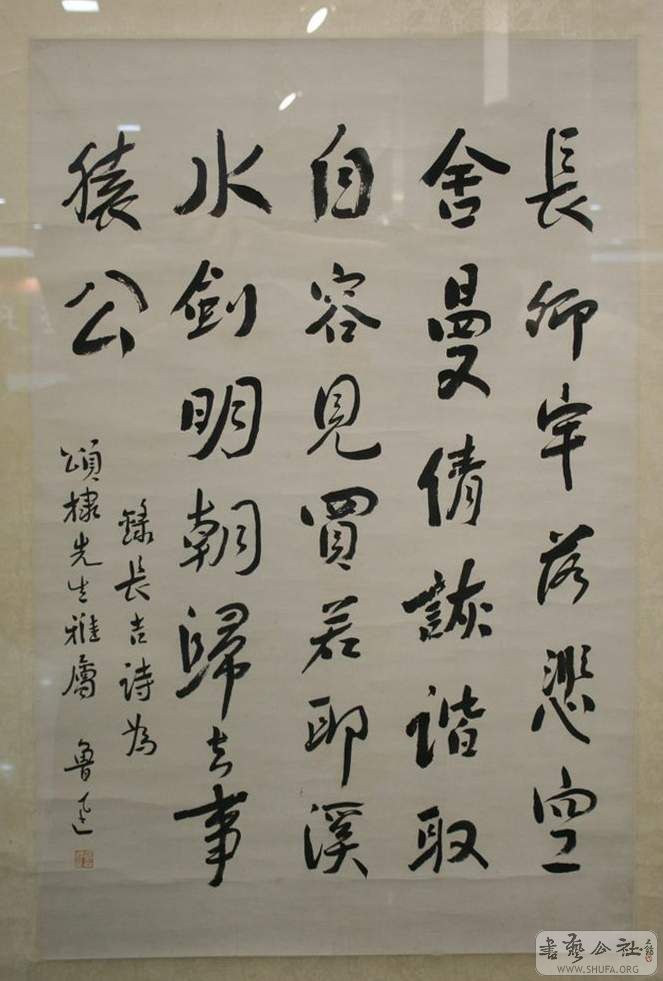 長卿牢落悲空
舍曼倩詼諧取
自容見買若耶溪
水劍明朝歸去事
猿公
錄長吉詩為
頌棣先生雅屬 魯迅
書藝公社
WWW.SHUFA.ORG